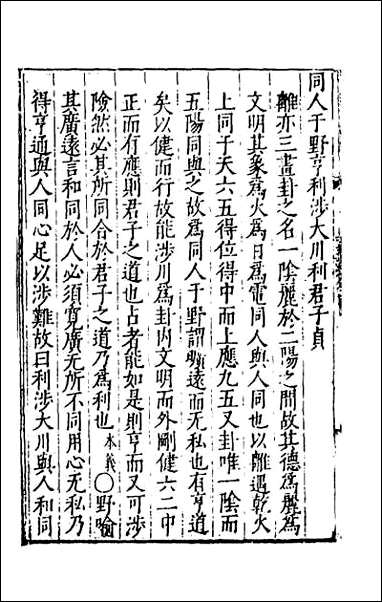 同人于野亨利涉大川利君子貞
離亦三畫卦之名一陰麗於二陽之間故其德爲麗爲
文明其象爲火爲日爲電同人與人同也以離遇乾火
上同于天六二得位得中而上應九五又卦唯一陰而
五陽同與之故爲同人于野謂曠遠而无私也有亨道
矣以健而行故能涉川爲卦内文明而外剛健六二中
正而有應則君子之道也占者能如是則亨而又可涉
險然必其所同合於君子之道乃爲利也 本義 〇野喻
其廣遠言和同於人必須寛廣无所不同用心无私乃
得亨通與人同心足以涉難故曰利涉大川與人和同